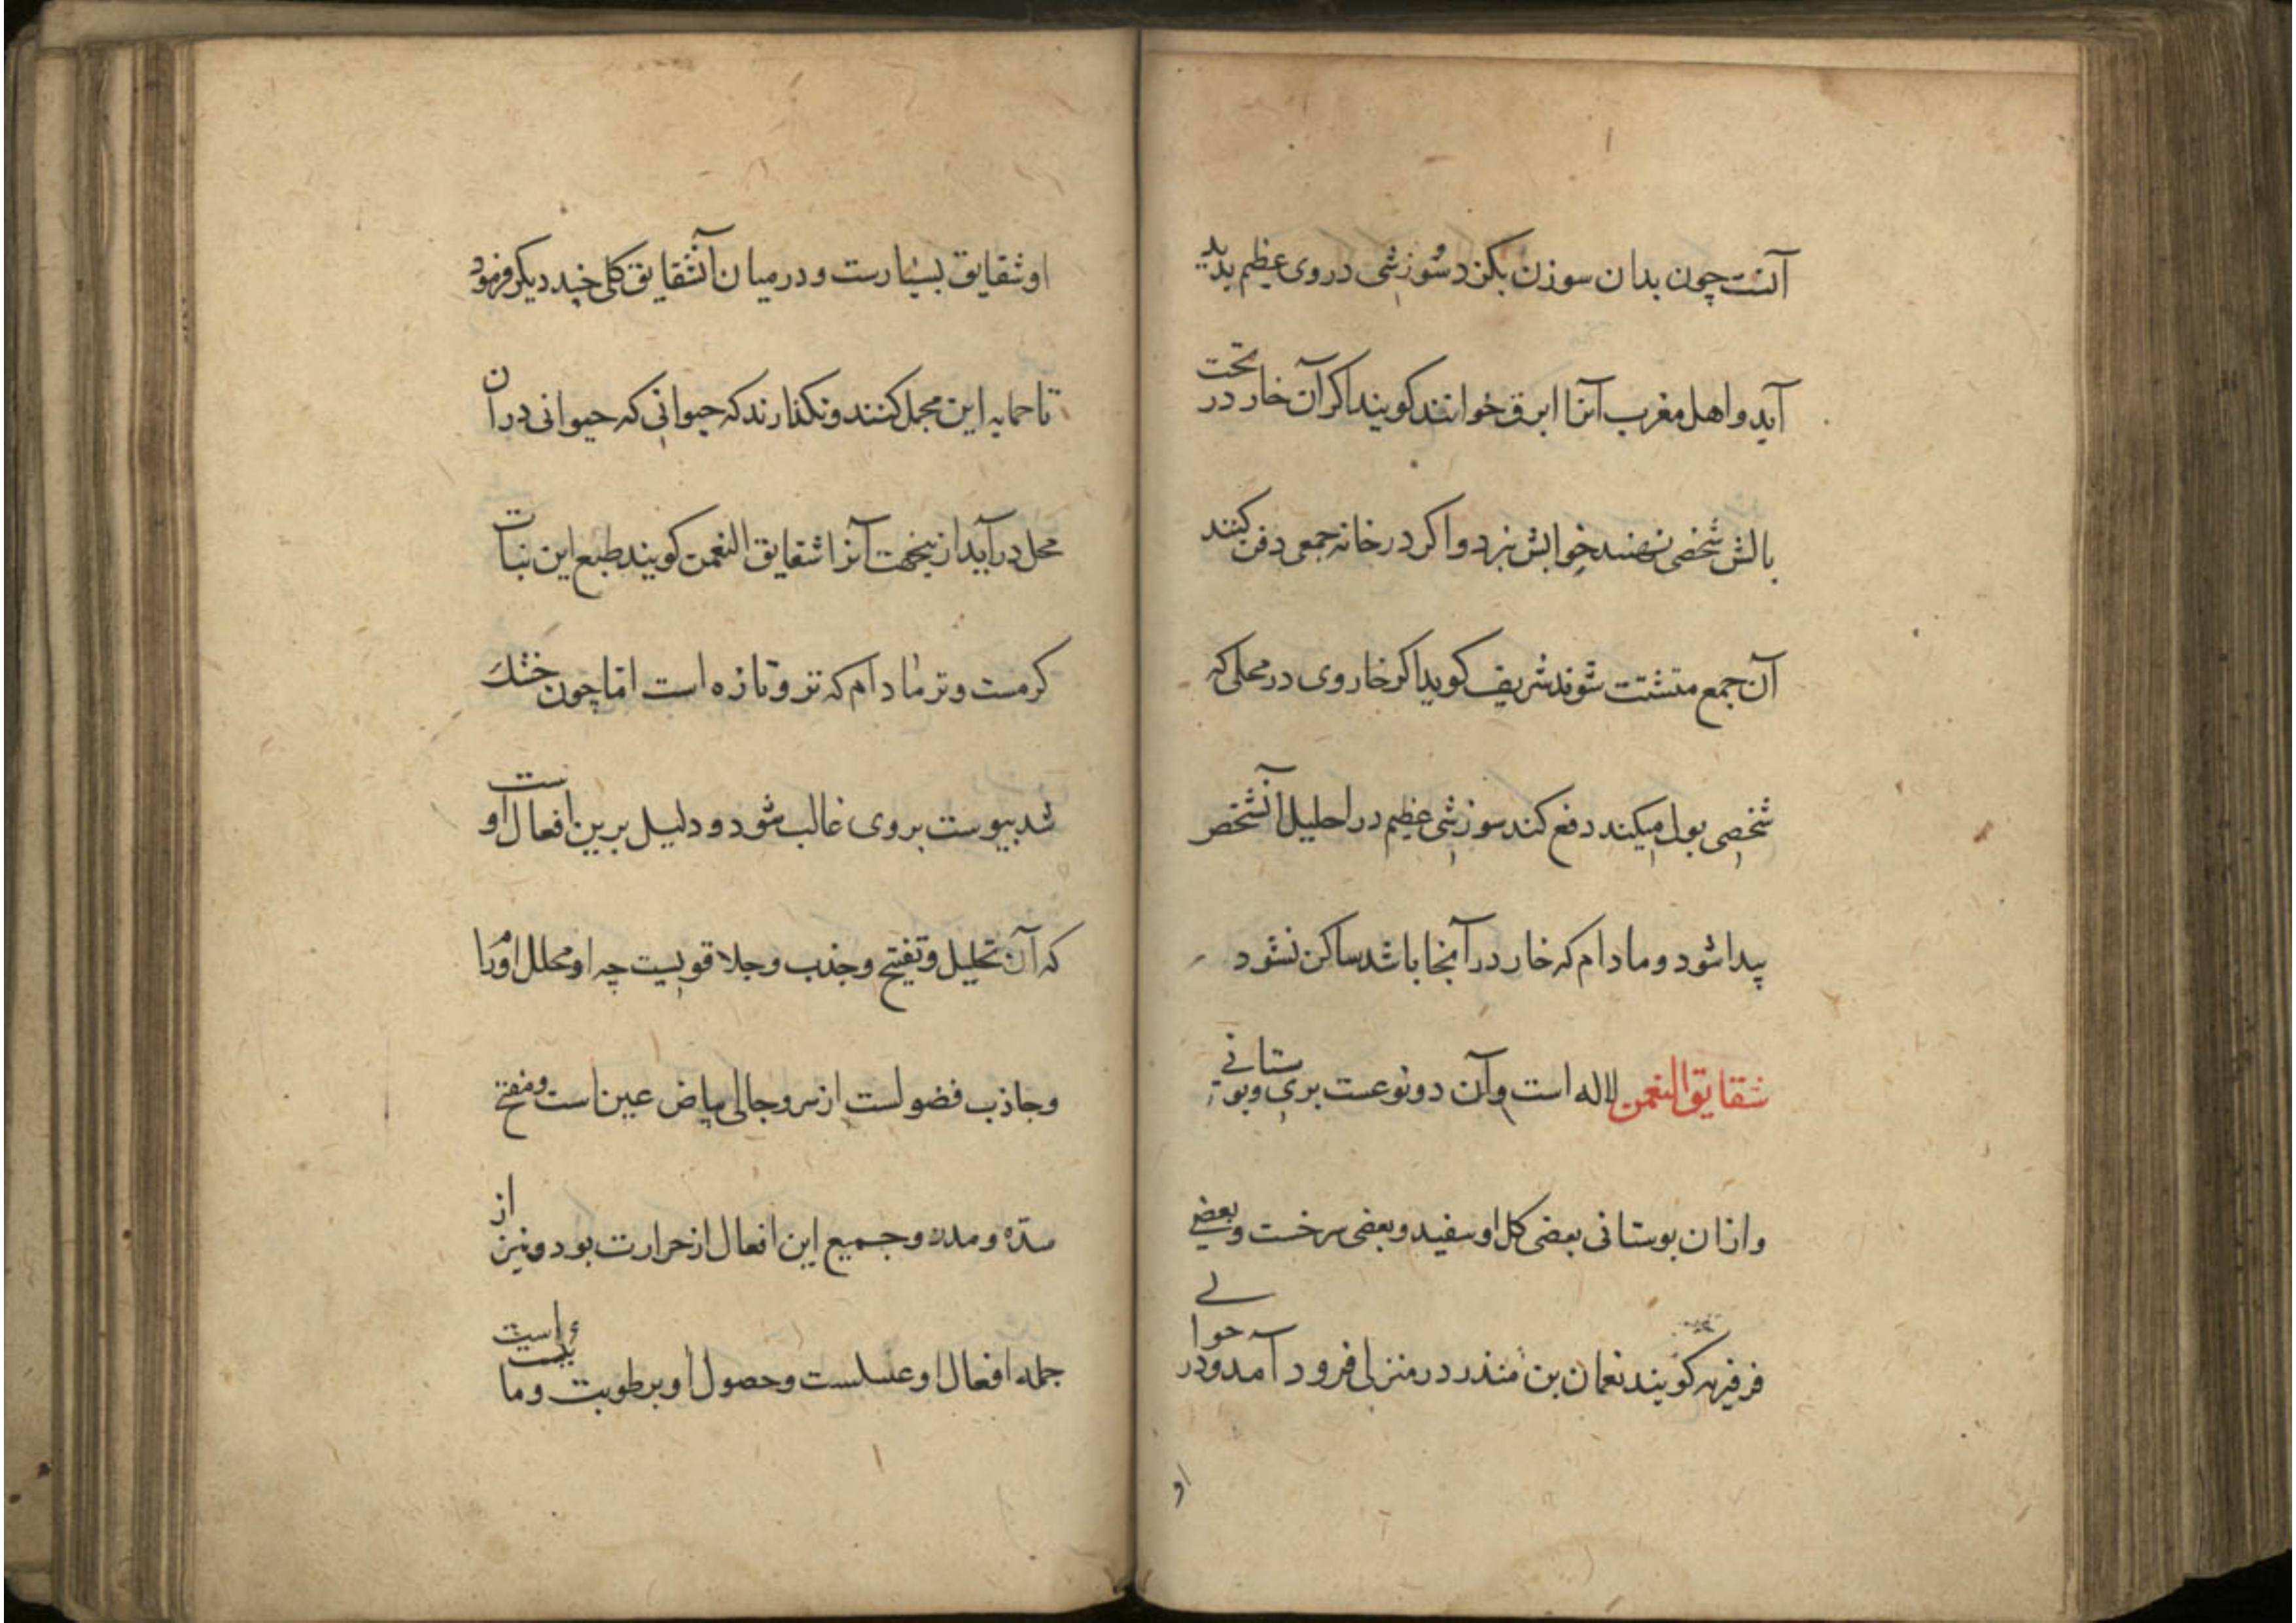 آنست چون بدان سوزن بکند سوزشی در وی عظیم پدید
آید و اهل مغرب آنرا ابرق خوانند کویند اکر آن خار در تحت
بالش شخصی نهند خوابش نبرد و اکر در خانه جمعی دفن کنند
آن جمع متشتت شوند شریف کوید اکر خار وی در محلی که
شخصی بول میکند دفع کند سوزشی عظیم در احلیل آنشخص
پیدا شود و مادام که خار در آنجا باشد ساکن نشود
شقایق النعمن لاله است وآن دو نوعست بری وبوستانی
وازان بوستانی بعضی کل او سفید وبعضی سرخست وبعضی
فرفیری کویند نعمان بن منذر در منزلی فرود آمد ودر حوالی
او
او شقایق بسیارست و درمیان آنشقایق کلی چند دیکر فرمود
تا حمایه این مجمل کنند ونکذارند که حیوانی که حیوانی در ان
محل در آید ازینجهت آنرا شقایق النعمن کویند طبع این نبات
کرمست و تر مادام که تر و تازه است اما چون خشک
شد یبوست بروی غالب شود و دلیل برین افعال اوست
که آن تحلیل وتفتیح وجذب وجلا قویست چه او محلل اورا
وجاذب فضولست از سر وجالی بیاض عین است ومفتح
سده ومدر وجمیع این افعال از حرارت بود ونیز از
جمله افعال او وحصول او برطوبت وما